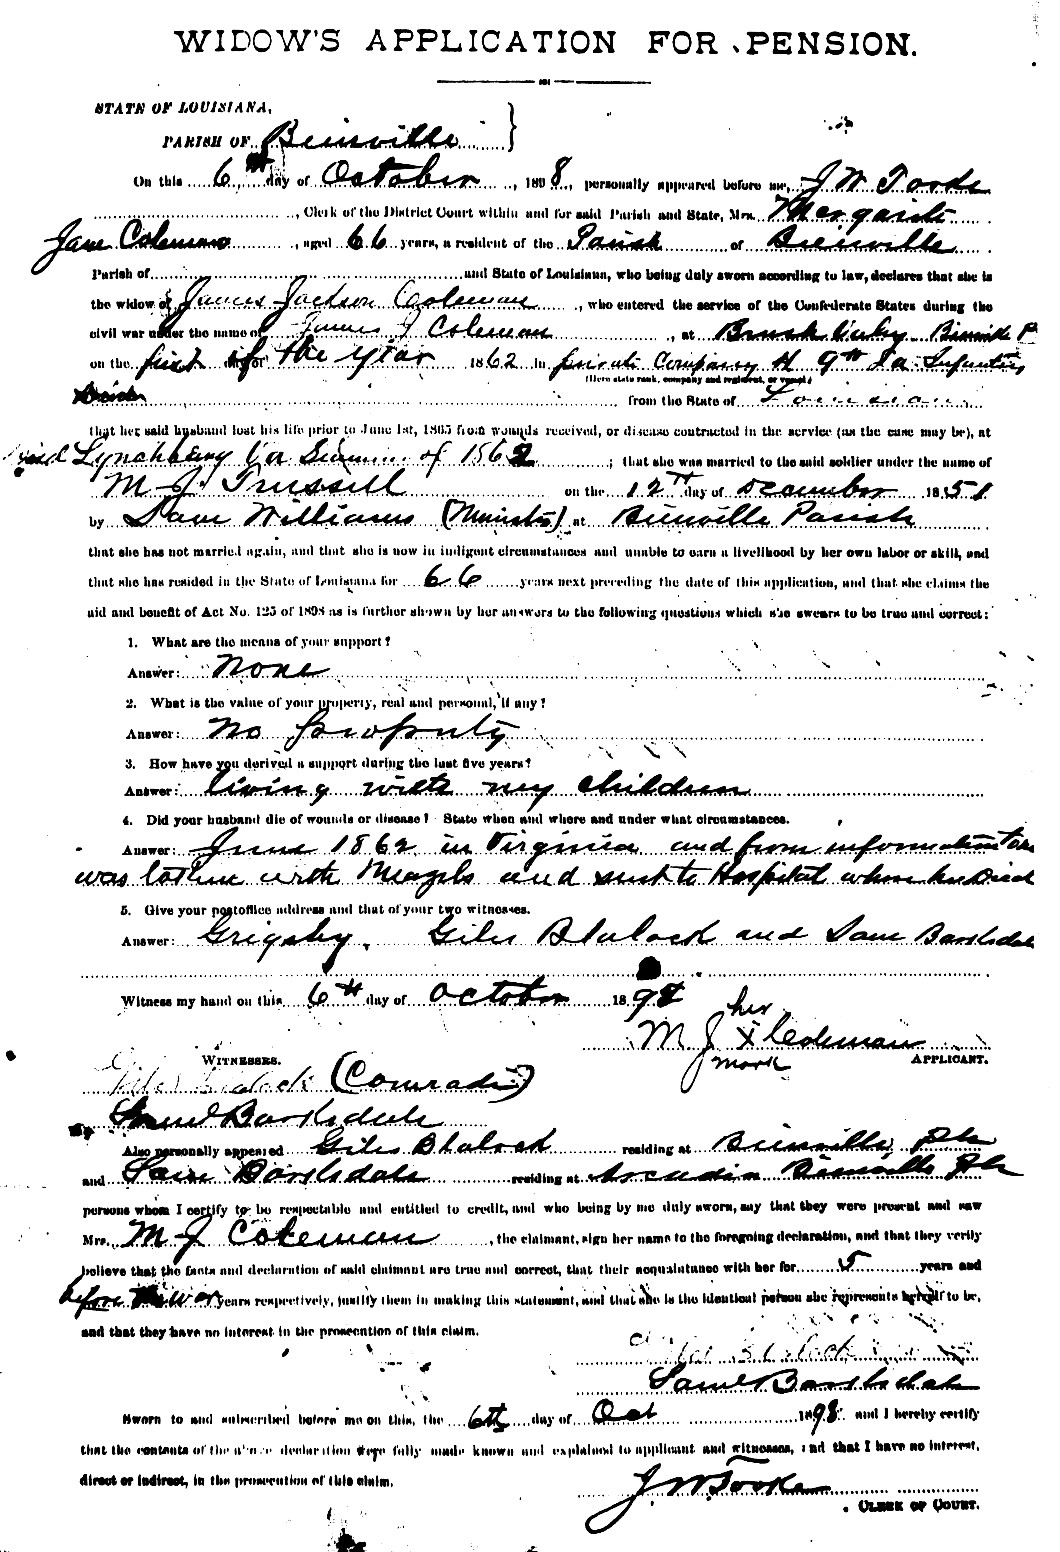 WIDOW'S APPLICATION FOR PENSION.
STATE OF LOUISIANA,
PARISH OF Beinville
On this 6th day of October, 1898, personally appeared before me, J W Tooke
, Clerk of the District Court within and for said Parish and State, Mrs. Margaret
Jane Coleman, aged 66 years, a resident of the Parish of Bienville
Parish of and State of Louisiana, who being duly sworn according to law, declares that she is
the widow of James Jackson Coleman, who entered the service of the Confederate States during the
civil war under the name of James J Coleman, at Brush Bienville P
on the first of the year 1862 in private Company H 9th La Infantry
(Here state rank, company and regiment, or vessel)
from the State of Louisiana
that her said husband lost his life prior to June 1st, 1865 from wounds received, or disease contracted in the service (as the case may be), at
Lynchburg Va of 1862; that she was married to the said soldier under the name of
M J Trussell on the 12th day of December 1851
by Dave Williams (Minister) at Bienville Parish
that she has not married again, and that she is now in indigent circumstances and unable to earn a livelihood by her own labor or skill, and
that she has resided in the State of Louisiana for 66 years next preceding the date of this application, and that she claims the
aid and benefit of Act No. 125 of 1898 as is further shown by her answers to the following questions which she swears to be true and correct:
1. What are the means of your support?
Answer: None
2. What is the value of your property, real and personal, if any?
Answer: No property
3. How have you derived a support during the last five years?
Answer: living with my children
4. Did your husband die of wounds or disease? State when and where and under what circumstances.
Answer: June 1862 in Virginia and from information
was with Measels and sent to Hospital where he Died
5. Give your postoffice address and that of your two witnesses.
Answer: Grigsby, Giles Blalock and Sam Barksdale
Witness my hand on this 6th day of October 1898
her
M J X Coleman
mark APPLICANT.
WITNESSES.
Giles Blalock (Comrade)
Saml Barksdale
Also personally appeared Giles Blalock residing at Bienville Ph
and Sam Barksdale residing at Arcadia Bienville Ph
persons whom I certify to be respectable and entitled to credit, and who being by me duly sworn, say that they were present and saw
Mrs. M J Coleman, the claimant, sign her name to the foregoing declaration, and that they verily
believe that the facts and declaration of said claimant are true and correct, that their acquaintance with her for 5 years and
before the war years respectively, justify them in making this statement, and that she is the identical person she represents herself to be,
and that they have no interest in the prosecution of this claim.
Giles Blalock
Saml Barksdale
Sworn to and subscribed before me on this, the 6th day of Oct 1898 and I hereby certify
that the contents of the above declaration were fully made known and explained to applicant and witnesses, and that I have no interest,
direct or indirect, in the prosecution of this claim.
J. W Tooke
CLERK OF COURT.